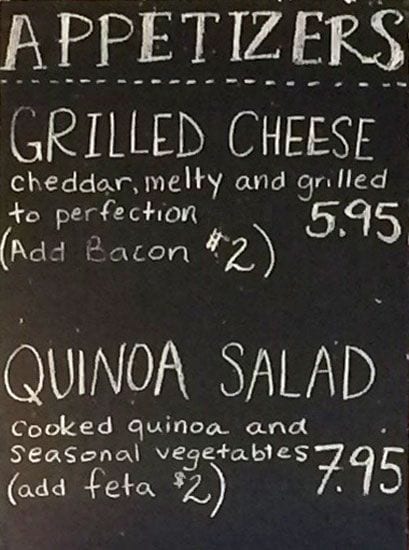 APPETIZERS
GRILLED CHEESE
cheddar, melty and grilled
to perfection 5.95
(Add Bacon $2)
QUINOA SALAD
Cooked quinoa and
seasonal vegetables 7.95
(add feta $2)